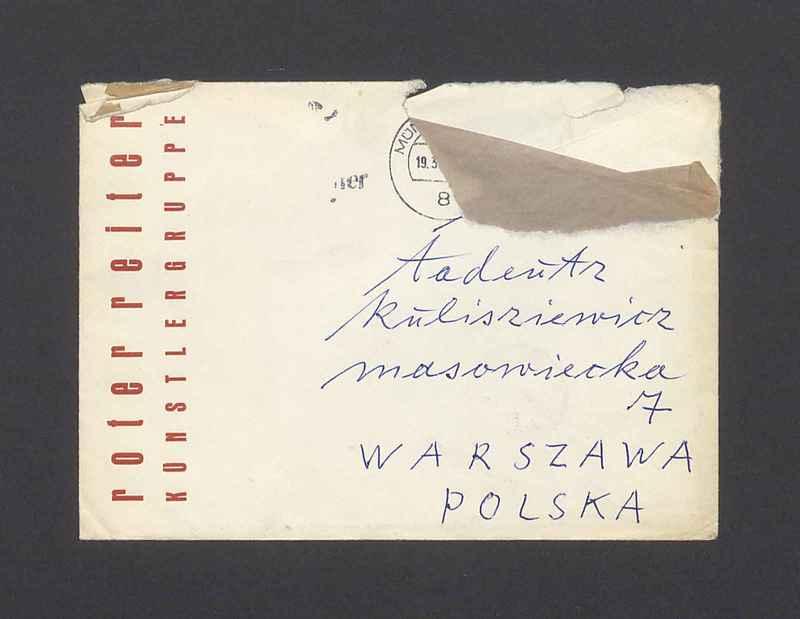 roter reiter
KUNSTLERGRUPPE
MÜN
19.3
8
Tadeusz
Kulisziewicz
masowiecka
7
WARSZAWA
POLSKA